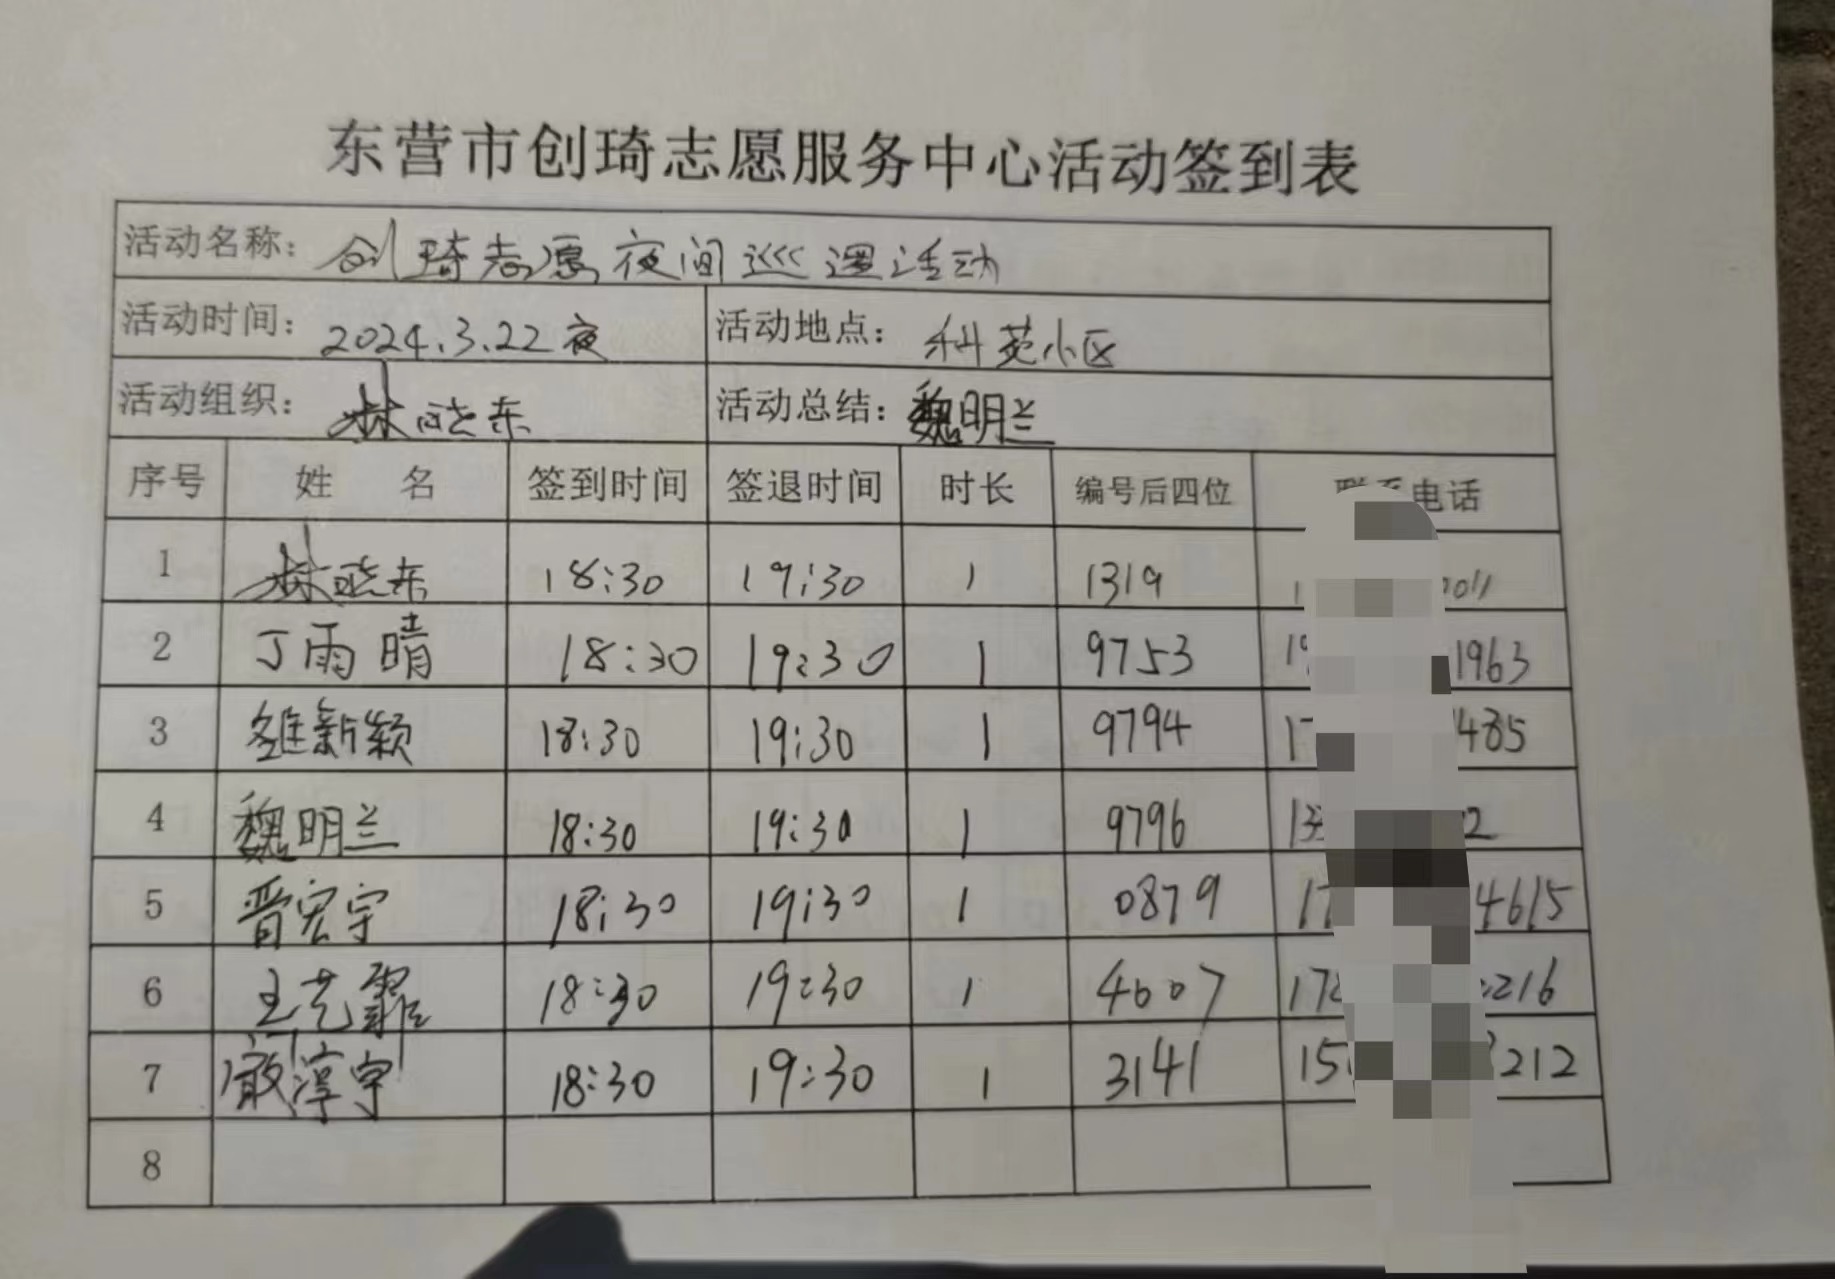 东营市创琦志愿服务中心活动签到表
活动名称: 创琦志愿夜间巡逻活动
活动时间: 2024.3.22夜 活动地点: 科苑小区
活动组织: 林晓东 活动总结: 魏明兰
序号 姓 名 签到时间 签退时间 时长 编号后四位 电话
1 林晓东 18:30 19:30 1 1319
2 丁雨晴 18:30 19:30 1 9753 1963
3 新颖 18:30 19:30 1 9794 485
4 魏明兰 18:30 19:30 1 9796
5 晋宏宇 18:30 19:30 1 0879 4615
6 王艺霏 18:30 19:30 1 4607 216
7 淳宇 18:30 19:30 1 3141 212
8